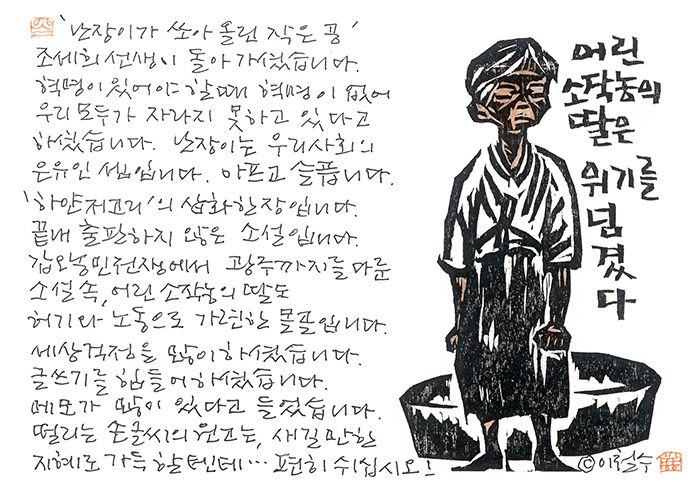 '난장이가 쏘아 올린 작은 공'
조세희 선생이 돌아가셨습니다.
혁명이 있어야 할 때 혁명이 없어
우리 모두가 자라지 못하고 있다고
하셨습니다. 난장이는 우리사회의
은유인 셈입니다. 아프고 슬픕니다.
'하얀저고리'의 삽화 한 장입니다.
끝내 출판하지 않은 소설입니다.
갑오농민전쟁에서 광주까지를 다룬
소설 속, 어린 소작농의 딸도
허기와 노동으로 가련한 몰골입니다.
세상걱정을 많이 하셨습니다.
글쓰기를 힘들어 하셨습니다.
메모가 많이 있다고 들었습니다.
떨리는 손글씨의 원고는, 새길만한
지혜로 가득 할텐데… 편히 쉬십시오!
어린
소작농의
딸은
위기를
넘
겼
다
©이철수